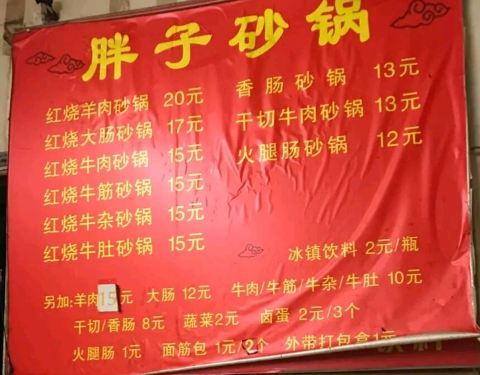 胖子砂锅
红烧羊肉砂锅 20元
红烧大肠砂锅 17元
红烧牛肉砂锅 15元
红烧牛筋砂锅 15元
红烧牛杂砂锅 15元
红烧牛肚砂锅 15元
香肠砂锅 13元
干切牛肉砂锅 13元
火腿肠砂锅 12元
冰镇饮料 2元/瓶
另加:羊肉15元 大肠 12元 牛肉/牛筋/牛杂/牛肚 10元
干切/香肠 8元 蔬菜2元 卤蛋 2元/3个
火腿肠 1元 面筋包 1元/2个 外带打包盒1元